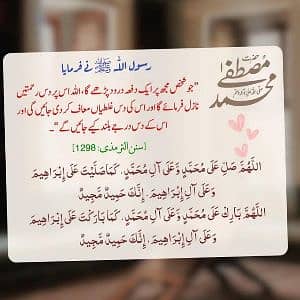 رسول اللہ ﷺ نے فرمایا
حضرت
محمد مصطفیٰ
صلی اللہ علیہ وآلہ وسلم
"جو شخص مجھ پر ایک دفعہ درود پڑھے گا، اللہ اس پر دس رحمتیں
نازل فرمائے گا اور اس کی دس غلطیاں معاف کر دی جائیں گی اور
اس کے دس درجے بلند کیے جائیں گے"۔
[سنن الترمذی: 1298]
اللَّهُمَّ صَلِّ عَلَى مُحَمَّدٍ وَعَلَى آلِ مُحَمَّدٍ، كَمَا صَلَّيْتَ عَلَى إِبْرَاهِيمَ
وَعَلَى آلِ إِبْرَاهِيمَ، إِنَّكَ حَمِيدٌ مَجِيدٌ
اللَّهُمَّ بَارِكْ عَلَى مُحَمَّدٍ وَعَلَى آلِ مُحَمَّدٍ، كَمَا بَارَكْتَ عَلَى إِبْرَاهِيمَ
وَعَلَى آلِ إِبْرَاهِيمَ، إِنَّكَ حَمِيدٌ مَّجِيدٌ